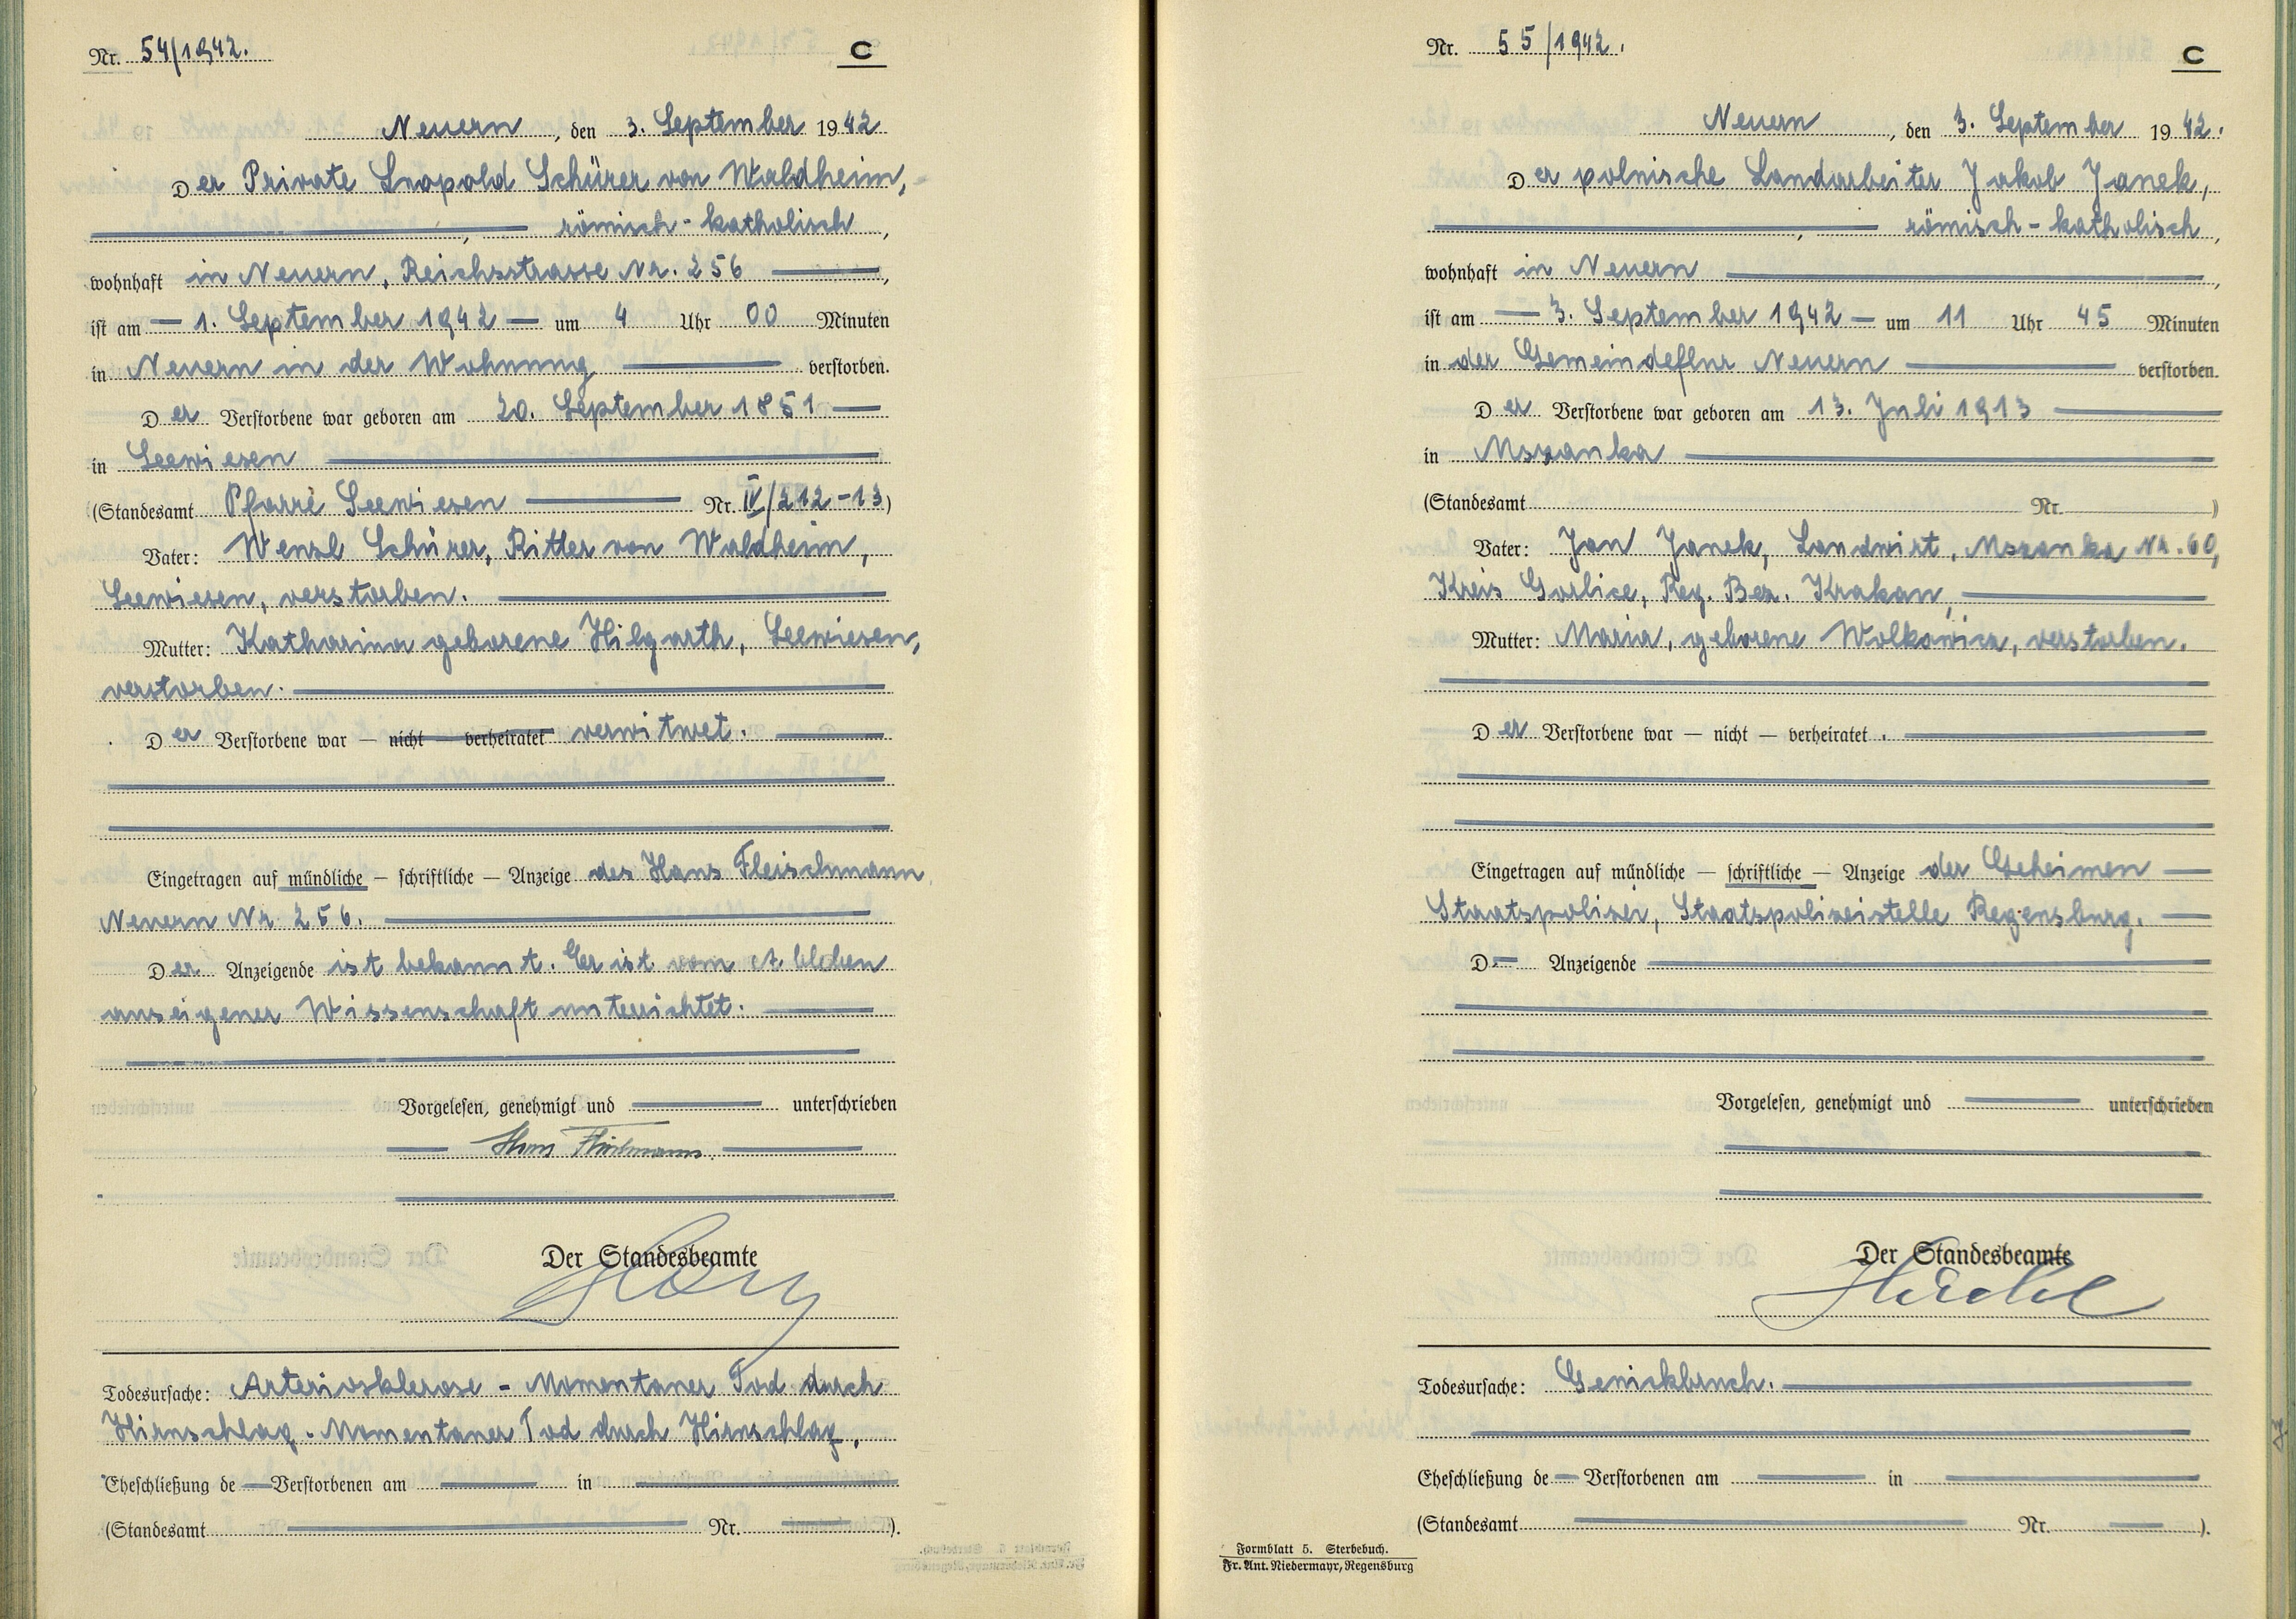 Nr. 54/1942.
C
Neuern, den 3. September 1942
Der Private Leopold Schürer von Waldheim,
, römisch-katholisch,
wohnhaft in Neuern, Reichsstrasse Nr. 256,
ist am 1. September 1942 um 4 Uhr 00 Minuten
in Neuern in der Wohnung verstorben.
Der Verstorbene war geboren am 20. September 1851
in Seewiesen
(Standesamt Pfarre Seewiesen Nr. IV/212-13)
Vater: Wenzl Schürer, Ritter von Waldheim,
Seewiesen, verstorben.
Mutter: Katharina geborene Hilgarth, Seewiesen,
verstorben.
Der Verstorbene war — nicht — verheiratet verwitwet.
Eingetragen auf mündliche — schriftliche — Anzeige des Hans Fleischmann
Neuern Nr. 256.
Der Anzeigende ist bekannt. Er ist vom
aus eigener Wissenschaft unterrichtet.
Vorgelesen, genehmigt und unterschrieben
Hans Fleischmann.
Der Standesbeamte
Todesursache: Arteriosklerose - Momentaner Tod durch
Hirnschlag. Momentaner Tod durch Hirnschlag.
Eheschließung de Verstorbenen am in
(Standesamt Nr. ).
Nr. 55/1942.
C
Neuern, den 3. September 1942.
Der polnische Landarbeiter Jakob Janek,
, römisch-katholisch,
wohnhaft in Neuern,
ist am 3. September 1942 um 11 Uhr 45 Minuten
in der Gemeindeflur Neuern verstorben.
Der Verstorbene war geboren am 13. Juli 1913
in Mszanka
(Standesamt Nr. )
Vater: Jan Janek, Landwirt, Mszanka Nr. 60,
Kreis Gorlice, Reg. Bez. Krakau,
Mutter: Maria, geborene Wolkowicz, verstorben.
Der Verstorbene war — nicht — verheiratet.
Eingetragen auf mündliche — schriftliche — Anzeige der Geheimen
Staatspolizei, Staatspolizeistelle Regensburg.
D. Anzeigende
Vorgelesen, genehmigt und unterschrieben
Der Standesbeamte
Todesursache: Genickbruch.
Eheschließung de Verstorbenen am in
(Standesamt Nr. ).
Formblatt 5. Sterbebuch.
Fr. Ant. Niedermayr, Regensburg